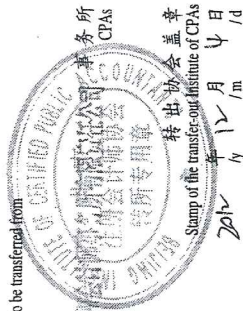 to be transferred from
事务所
CPAs
TUTE OF CERTIFIED PUBLIC ACCOUNTANT
BEIJING
注册会计师协会
转所专用章
转出协会盖章
Stamp of the transfer-out Institute of CPAs
2012 年 12 月 14 日
/y /m /d